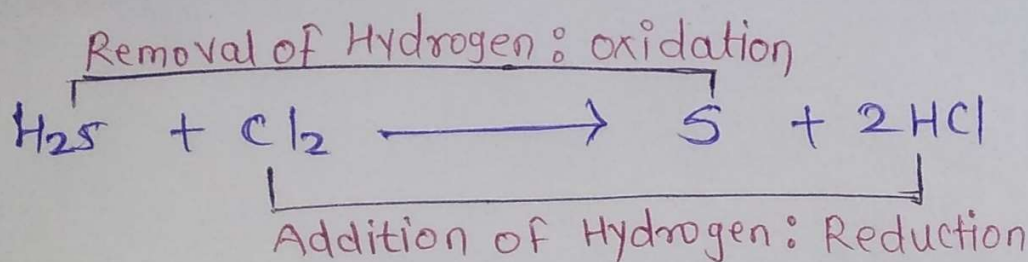 Removal of Hydrogen : oxidation
H₂S + Cl₂ → S + 2HCl
Addition of Hydrogen : Reduction